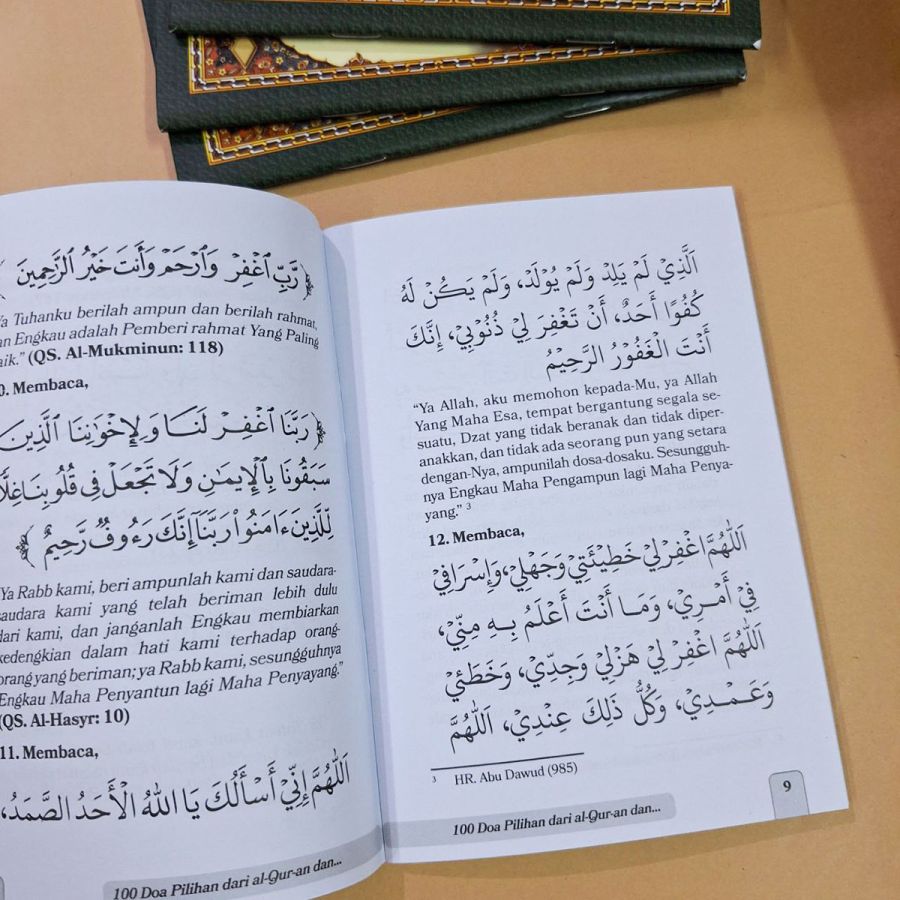 ﴿ رَّبِّ ٱغۡفِرۡ وَٱرۡحَمۡ وَأَنتَ خَيۡرُ ٱلرَّٰحِمِينَ ﴾
Ya Tuhanku berilah ampun dan berilah rahmat,
an Engkau adalah Pemberi rahmat Yang Paling
aik.” (QS. Al-Mukminun: 118)
0. Membaca,
﴿ رَبَّنَا ٱغۡفِرۡ لَنَا وَلِإِخۡوَٰنِنَا ٱلَّذِينَ
سَبَقُونَا بِٱلۡإِيمَٰنِ وَلَا تَجۡعَلۡ فِي قُلُوبِنَا غِلّٗا
لِّلَّذِينَ ءَامَنُواْ رَبَّنَآ إِنَّكَ رَءُوفٞ رَّحِيمٌ ﴾
“Ya Rabb kami, beri ampunlah kami dan saudara-
saudara kami yang telah beriman lebih dulu
dari kami, dan janganlah Engkau membiarkan
kedengkian dalam hati kami terhadap orang-
orang yang beriman; ya Rabb kami, sesungguhnya
Engkau Maha Penyantun lagi Maha Penyayang.”
(QS. Al-Hasyr: 10)
11. Membaca,
اَللّٰهُمَّ إِنِّيْ أَسْأَلُكَ يَا اَللّٰهُ الْأَحَدُ الصَّمَدُ،
100 Doa Pilihan dari al-Qur-an dan...
الَّذِيْ لَمْ يَلِدْ وَلَمْ يُوْلَدْ، وَلَمْ يَكُنْ لَهُ
كُفُوًا أَحَدٌ، أَنْ تَغْفِرَ لِيْ ذُنُوْبِيْ، إِنَّكَ
أَنْتَ الْغَفُوْرُ الرَّحِيْمُ
“Ya Allah, aku memohon kepada-Mu, ya Allah
Yang Maha Esa, tempat bergantung segala se-
suatu, Dzat yang tidak beranak dan tidak diper-
anakkan, dan tidak ada seorang pun yang setara
dengan-Nya, ampunilah dosa-dosaku. Sesungguh-
nya Engkau Maha Pengampun lagi Maha Penya-
yang.” 3
12. Membaca,
اَللّٰهُمَّ اغْفِرْ لِيْ خَطِيْئَتِيْ وَجَهْلِيْ، وَإِسْرَافِيْ
فِيْ أَمْرِيْ، وَمَا أَنْتَ أَعْلَمُ بِهِ مِنِّيْ،
اَللّٰهُمَّ اغْفِرْ لِيْ هَزْلِيْ وَجِدِّيْ، وَخَطَئِيْ
وَعَمْدِيْ، وَكُلُّ ذٰلِكَ عِنْدِيْ، اَللّٰهُمَّ
3 HR. Abu Dawud (985)
100 Doa Pilihan dari al-Qur-an dan...
9